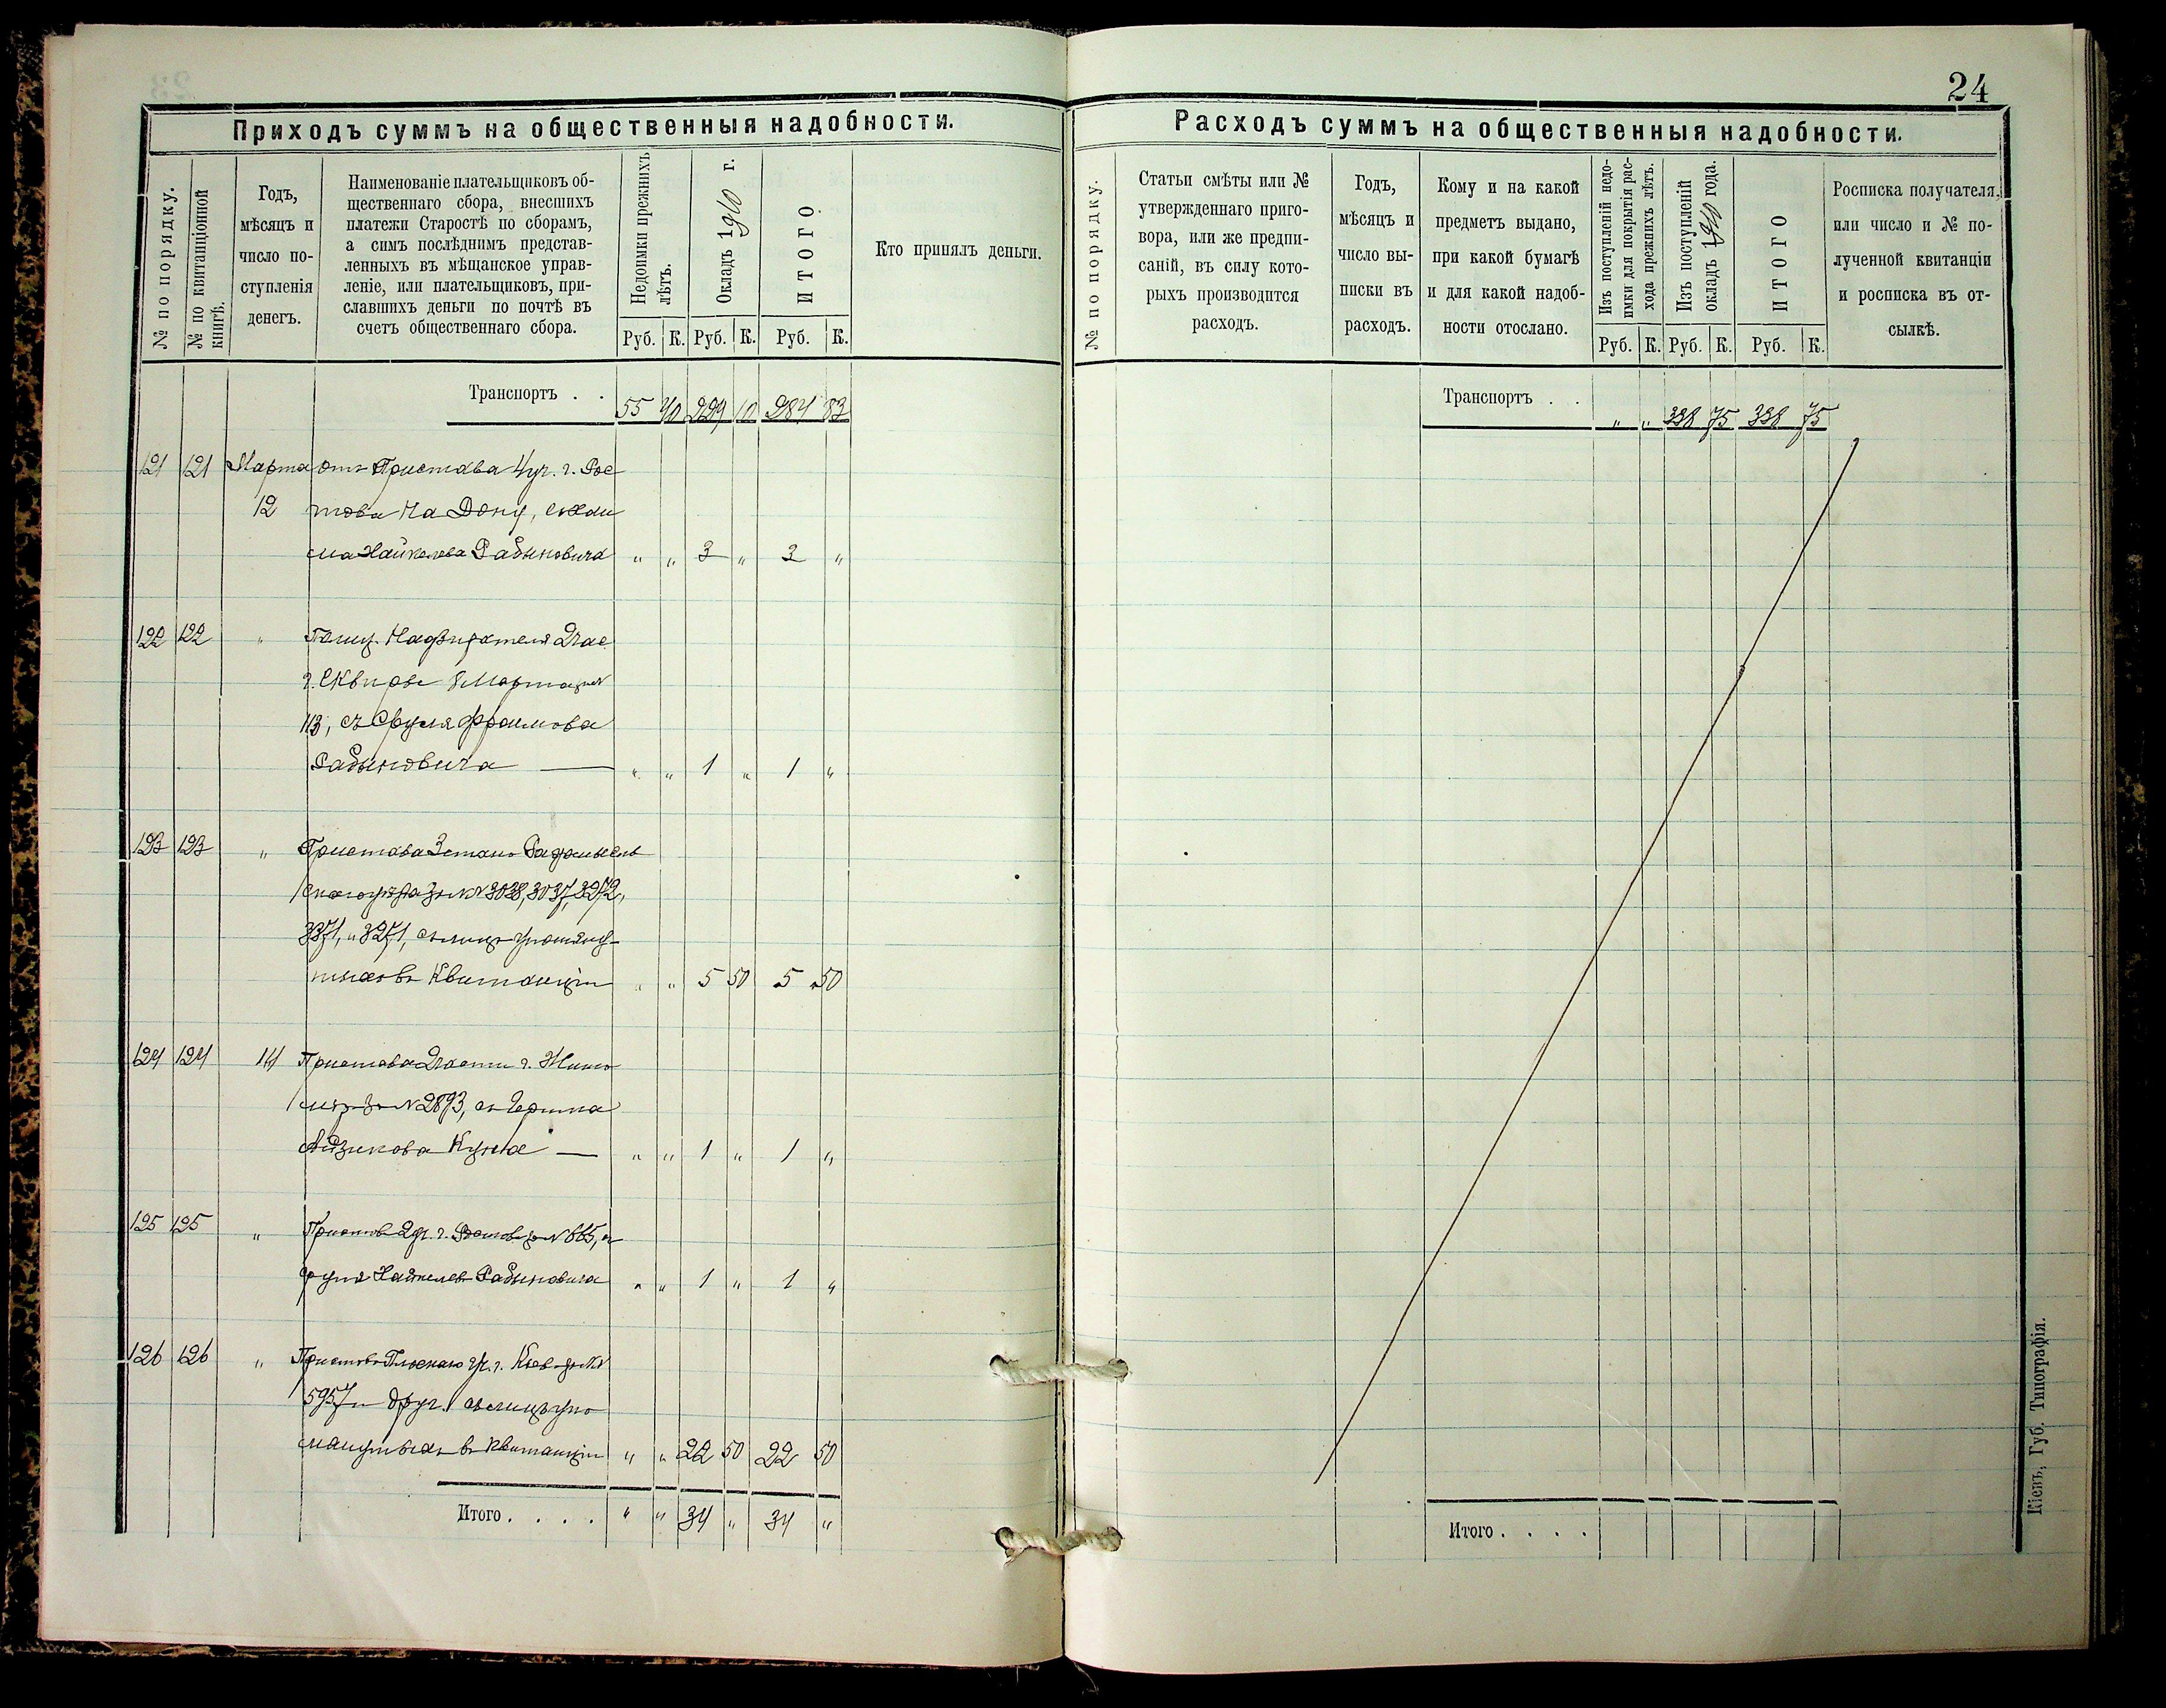 24
Приходъ суммъ на общественныя надобности.
№ по порядку.
№ по квитанціонной
книгѣ.
Годъ,
мѣсяцъ и
число по-
ступленія
денегъ.
Наименованіе плательщиковъ об-
щественнаго сбора, внесшихъ
платежи Старостѣ по сборамъ,
а симъ послѣднимъ представ-
ленныхъ въ мѣщанское управ-
леніе, или плательщиковъ, при-
славшихъ деньги по почтѣ въ
счетъ общественнаго сбора.
Недоимки прежнихъ
лѣтъ.
Окладъ 1910 г.
ИТОГО.
Руб. К. Руб. К. Руб. К.
Кто принялъ деньги.
Транспортъ . . 55 229 10 284 83
121 121 Марта отъ Пристава 4 уч. г. Рос
12 това на Дону,
Хайкелева Рабиновича „ „ 3 „ 3 „
122 122 „ Полиц. Надзирателя 2 час.
г. Сквиры 8 Марта
113, съ Сруля Фроимова
Рабиновича — „ „ 1 „ 1 „
123 123 „ Пристава 3 стана Радомысль
скаго уѣзда за №№ 3038, 3037, 3272,
3371, и 3271, съ лицъ упомяну-
тыхъ въ Квитанціи „ „ 5 50 5 50
124 124 14 Пристава 2 части г. Жито
міръ за № 2893, съ Гершка
Айзикова „ „ 1 „ 1 „
125 125 „ Пристава 2 уч. г. Ростова за № 665, съ
Сруля Хайкелев. Рабиновича „ „ 1 „ 1 „
126 126 „ Пристава Плоскаго уч. г. Кіева за №№
5957 и друг. съ лицъ упо
мянутыхъ въ Квитанціи „ „ 22 50 22 50
Итого . . . . „ „ 34 „ 34 „
Расходъ суммъ на общественныя надобности.
№ по порядку.
Статьи смѣты или №
утвержденнаго приго-
вора, или же предпи-
саній, въ силу кото-
рыхъ производится
расходъ.
Годъ,
мѣсяцъ и
число вы-
писки въ
расходъ.
Кому и на какой
предметъ выдано,
при какой бумагѣ
и для какой надоб-
ности отослано.
Изъ поступленій недо-
имки для покрытія рас-
хода прежнихъ лѣтъ.
Изъ поступленій
окладъ 1910 года.
ИТОГО
Руб. К. Руб. К. Руб. К.
Росписка получателя,
или число и № по-
лученной квитанціи
и росписка въ от-
сылкѣ.
Транспортъ . . „ „ 338 75 338 75
Итого . . . .
Кіевъ, Губ. Типографія.